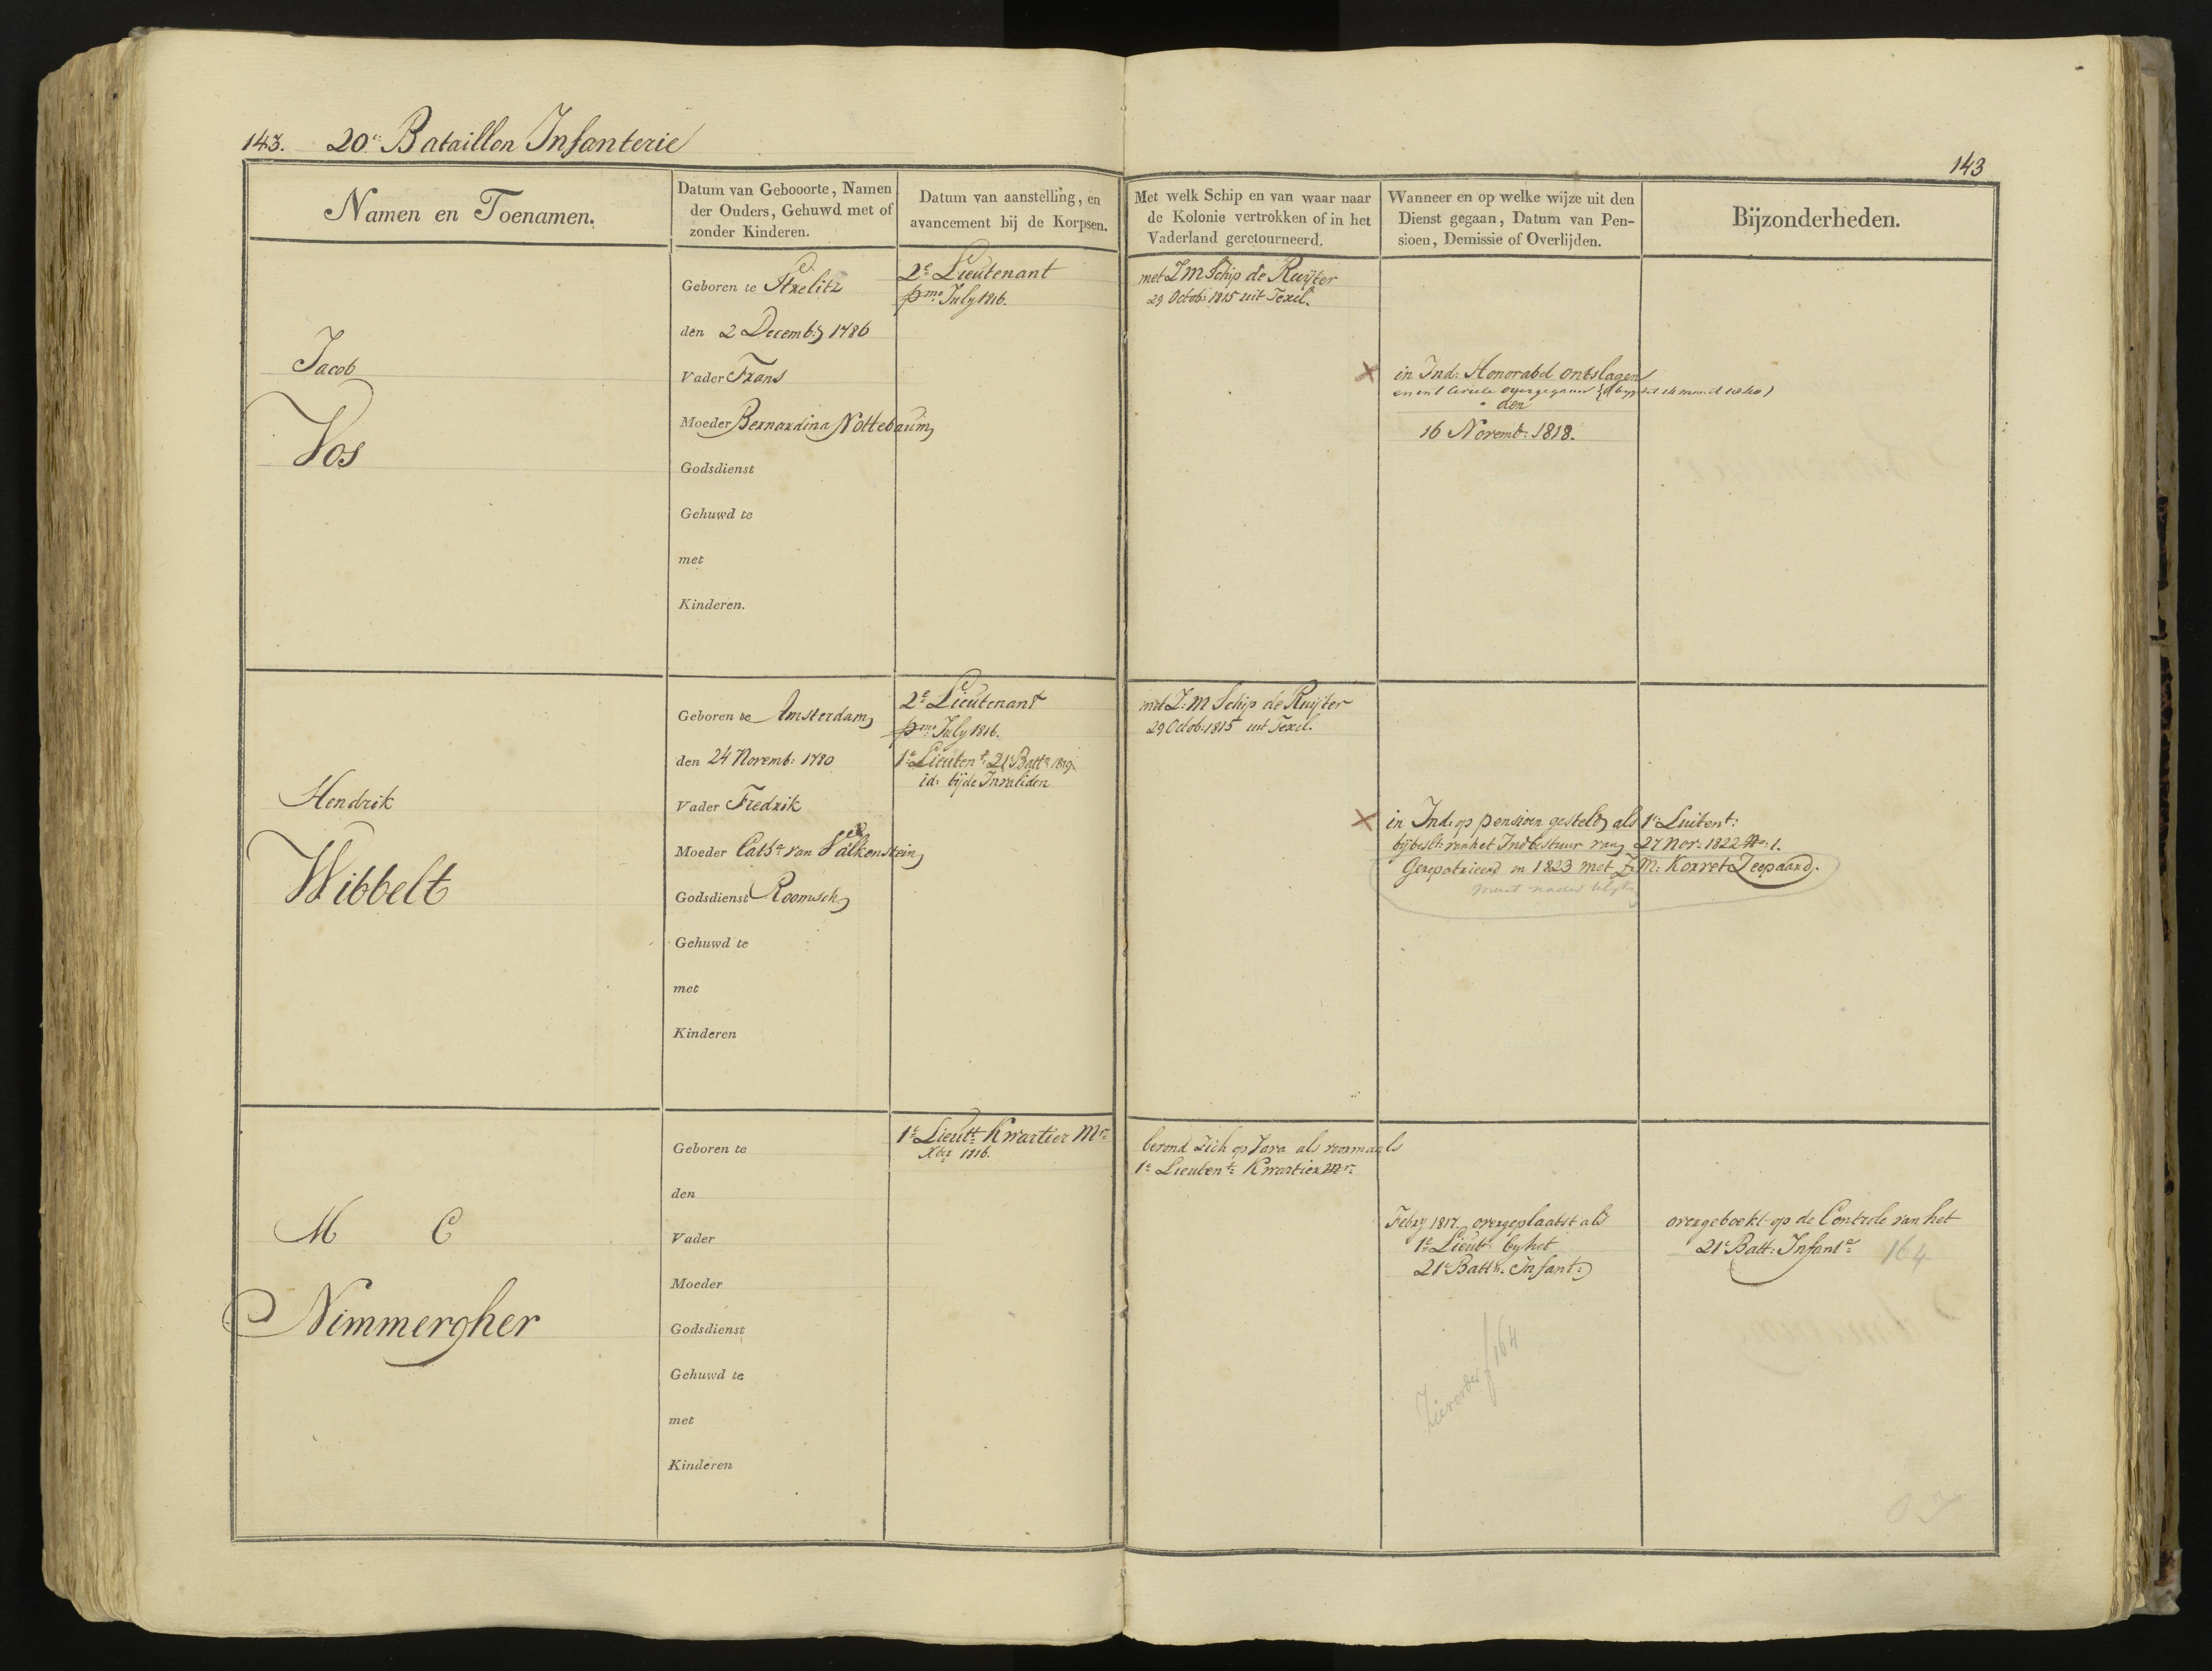 143. 20e Bataillon Infanterie
143
Namen en Toenamen.
Datum van Gebooorte, Namen
der Ouders, Gehuwd met of
zonder Kinderen.
Datum van aanstelling, en
avancement bij de Korpsen.
Met welk Schip en van waar naar
de Kolonie vertrokken of in het
Vaderland geretourneerd.
Wanneer en op welke wijze uit den
Dienst gegaan, Datum van Pen-
sioen, Demissie of Overlijden.
Bijzonderheden.
Jacob
Vos
Geboren te Strelitz
den 2 Decemb: 1786
Vader Frans
Moeder Bernardina Nottebaum
Godsdienst
Gehuwd te
met
Kinderen.
2e Lieutenant
pmo July 1816.
met Z M Schip de Ruijter
29 Octob: 1815 uit Texel.
in Ind: Honorabel ontslagen
den
16 Novemb: 1818.
Hendrik
Wibbelt
Geboren te Amsterdam
den 24 Novemb: 1780
Vader Fredrik
Moeder Catha van Valkenstein
Godsdienst Roomsch
Gehuwd te
met
Kinderen
2e Lieutenant
pmo July 1816.
1e Lieutent: 21e Battn 1819.
id: bijde Invaliden
met Z: M Schip de Ruijter
29 Octob: 1815 uit Texel.
in Ind: op pensioen gesteld als 1e Luitent:
bij beslt: van het Indbestuur van 27 Nov: 1822 No: 1.
Gerepatrieerd in 1823 met Z: M: Korvet Leopaard.
M C
Nimmergher
Geboren te
den
Vader
Moeder
Godsdienst
Gehuwd te
met
Kinderen
1e Lieutt Kwartier Mr
Xber 1816.
bevond zich op Java als voormaals
1e Lieutent: Kwartier Mr:
Febry 1817. overgeplaatst als
1e Lieutt by het
21e Battn. Infant:
overgeboekt op de Controle van het
21e Batt: Infante: 164
164